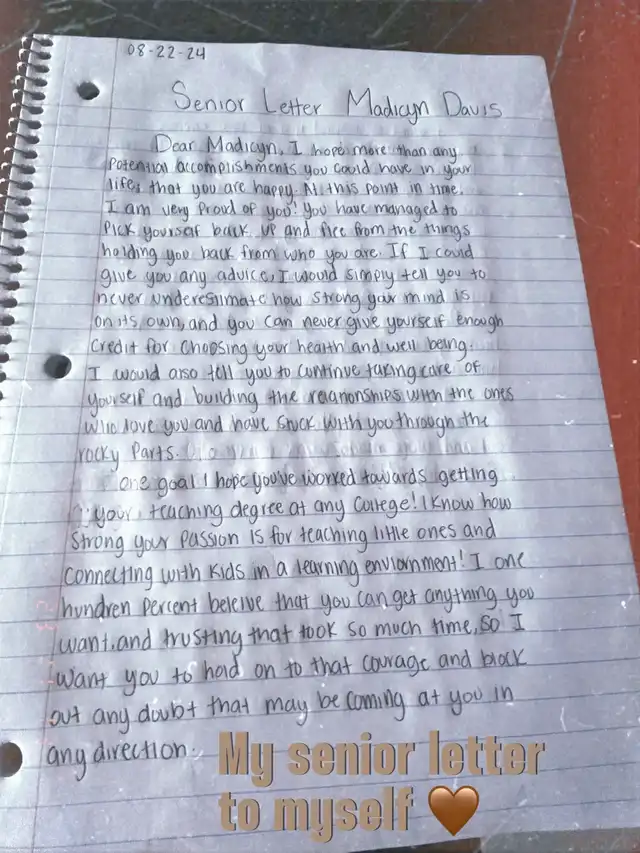 08-22-24
Senior Letter Madicyn Davis
Dear Madicyn, I hope more than any
potential accomplishments you could have in your
life, that you are happy. At this point in time,
I am very proud of you! You have managed to
pick yourself back up and free from the things
holding you back from who you are. If I could
give you any advice, I would simply tell you to
never underesimate how strong your mind is
on its own, and you can never give yourself enough
credit for choosing your health and well being.
I would also tell you to continue taking care of
yourself and building the relationships with the ones
who love you and have stuck with you through the
rocky parts.
One goal I hope you've worked towards getting
your teaching degree at any College! I know how
strong your passion is for teaching little ones and
connecting with kids in a learning enviornment! I one
hundren percent beleive that you can get anything you
want, and trusting that took so much time, so I
want you to hold on to that courage and block
out any doubt that may be coming at you in
any direction.
My senior letter
to myself 🤎